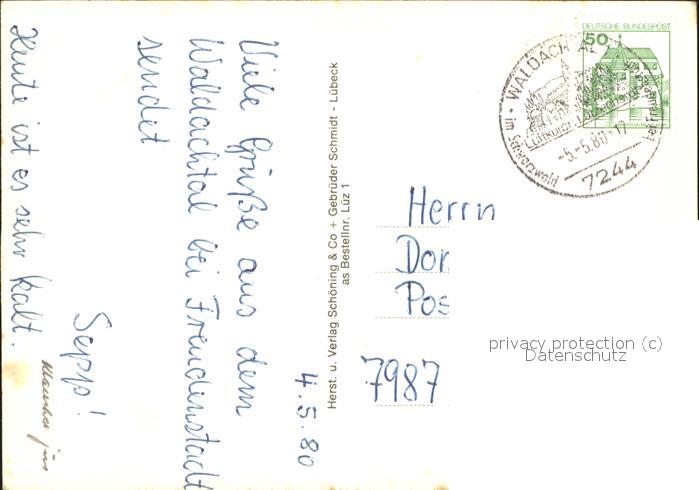 4.5.80
Viele Grüße aus dem
Waldachtal bei Freudenstadt
sendet
Sepp!
Heute ist es sehr kalt.
Herst. u. Verlag Schöning & Co + Gebrüder Schmidt - Lübeck
as Bestellnr. Lüz 1
DEUTSCHE BUNDESPOST
50
WALDACHTAL
Luftkurort
-5.-5.80-17
7244
im Schwarzwald
bei
Herrn
Dor
Pos
7987
privacy protection (c)
Datenschutz